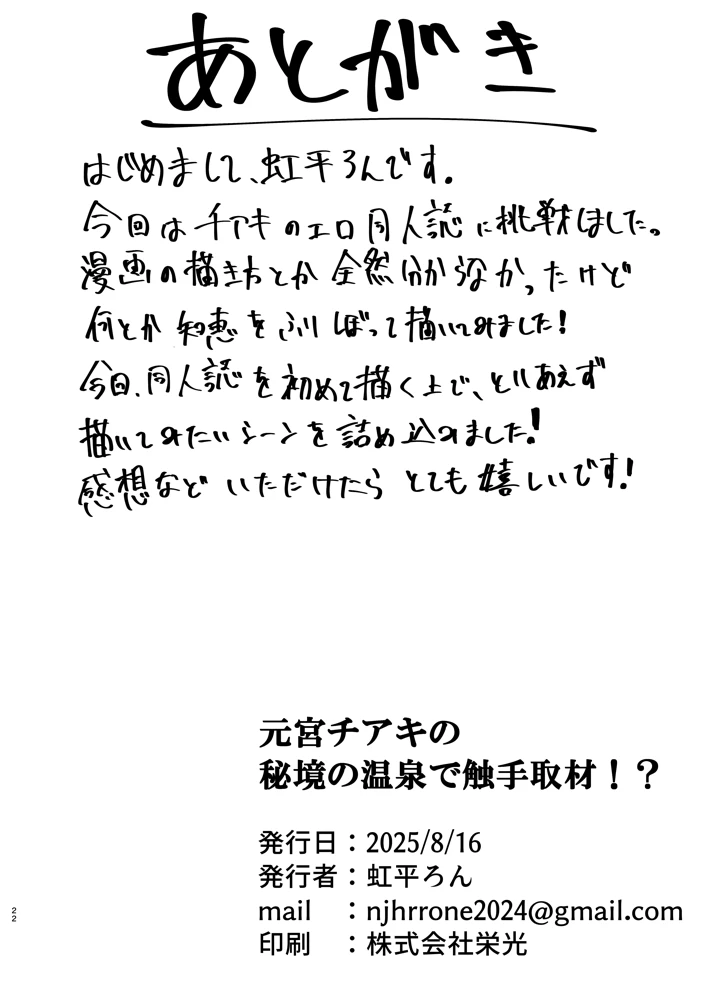 あとがき
はじめまして、虹平ろんです。
今回は千アキのエロ同人誌に挑戦しました。
漫画の描き方とか全然分からなかったけど
何とか知恵をふりしぼって描いてみました!
今回、同人誌を初めて描く上で、とりあえず
描いてみたいシーンを詰め込みました!
感想などいただけたらとても嬉しいです!
元宮チアキの
秘境の温泉で触手取材!?
発行日:2025/8/16
発行者:虹平ろん
mail :njhrrone2024@gmail.com
印刷 :株式会社栄光
22